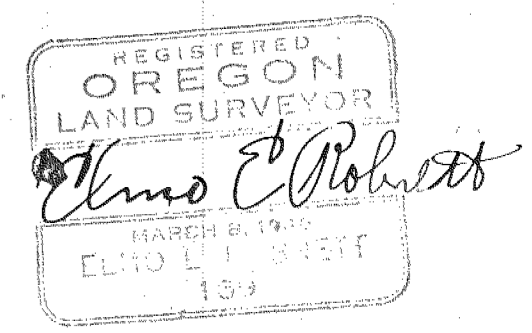 REGISTERED
OREGON
LAND SURVEYOR
Elmo E Robnett
MARCH 8,
ELMO E